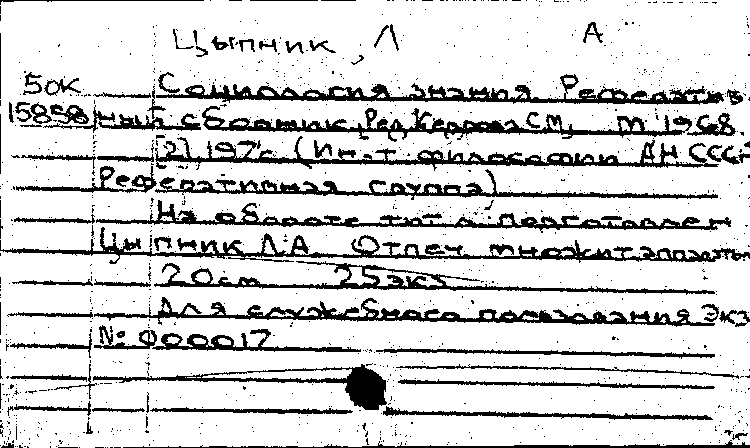 Цыпник, Л А
50К Социология знания. Рефератив
15858 ный сборник, Ред. Керрова С.М., М 1968
[2], 197с (Ин-т философии АН СССР
Реферативная группа)
На обороте тит л подготовлен
Цыпник Л.А. Отпеч. множит. аппаратом
20см 25экз
Для служебного пользования Экз
№ 000017